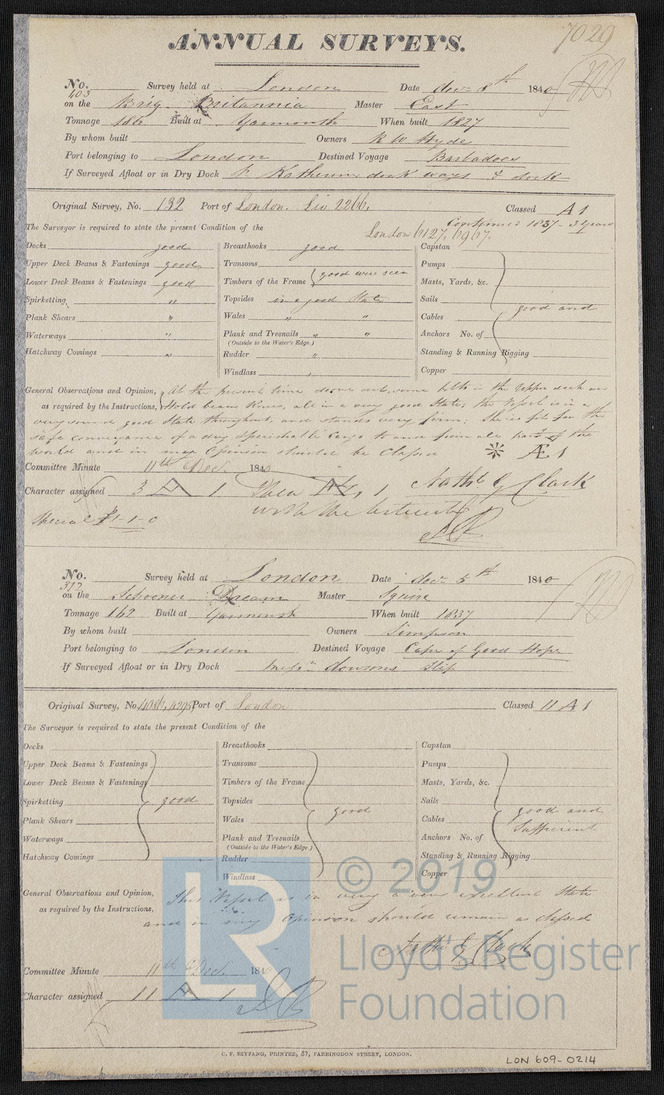 7029
ANNUAL SURVEYS.
No. 403 Survey held at London Date Decr 8th 1840
on the Brig Britannia Master East
Tonnage 186 Built at Yarmouth When built 1827
By whom built Owners R W Hyde
Port belonging to London Destined Voyage Barbadoes
If Surveyed Afloat or in Dry Dock St Katherine dock ways & dock
Original Survey, No. 182 Port of London. Liv 2266, Classed A 1
London 6127. 6967. Continued 1837 - 3 years
The Surveyor is required to state the present Condition of the
Decks good
Upper Deck Beams & Fastenings good
Lower Deck Beams & Fastenings good
Spirketting "
Plank Shears "
Waterways "
Hatchway Comings "
Breasthooks good
Transoms
Timbers of the Frame good were seen
Topsides in a good State
Wales " "
Plank and Treenails " "
(Outside to the Water's Edge.)
Rudder "
Windlass
Capstan
Pumps
Masts, Yards, &c.
Sails good and
Cables
Anchors No. of
Standing & Running Rigging
Copper
General Observations and Opinion, At the present time drove out some bolts in the upper deck and
as required by the Instructions, Hold beam Knees, all in a very good State; the Vessel is in a
very sound good State throughout, and stands very firm; She is fit for the
safe conveyance of a dry Perishable Cargo to and from all parts of the
world and in my Opinion should be Classed Æ 1
Committee Minute 11th Decr 1840
Character assigned 3 A 1 Nathl G Clark
with the
Special £1-1-0
No. 312 Survey held at London Date Decr 5th 1840
on the Schooner Dream Master Squire
Tonnage 162 Built at Yarmouth When built 1837
By whom built Owners Simpson
Port belonging to London Destined Voyage Cape of Good Hope
If Surveyed Afloat or in Dry Dock Messrs dowsons Slip
Original Survey, No. Port of London Classed 11 A 1
The Surveyor is required to state the present Condition of the
Decks
Upper Deck Beams & Fastenings
Lower Deck Beams & Fastenings
Spirketting good
Plank Shears
Waterways
Hatchway Comings
Breasthooks
Transoms
Timbers of the Frame
Topsides
Wales good
Plank and Treenails
(Outside to the Water's Edge.)
Rudder
Windlass
Capstan
Pumps
Masts, Yards, &c.
Sails good and
Cables Sufficient
Anchors No. of
Standing & Running Rigging
Copper
General Observations and Opinion, This Vessel is in very excellent State
as required by the Instructions, and in my Opinion should remain as Classed
Nathl G Clark
Committee Minute 11th Decr 184
Character assigned 11 A 1
© 2019
Lloyd's Register
Foundation
LR
C. F. SEYFANG, PRINTER, 57, FARRINGDON STREET, LONDON.
LON 609-0214